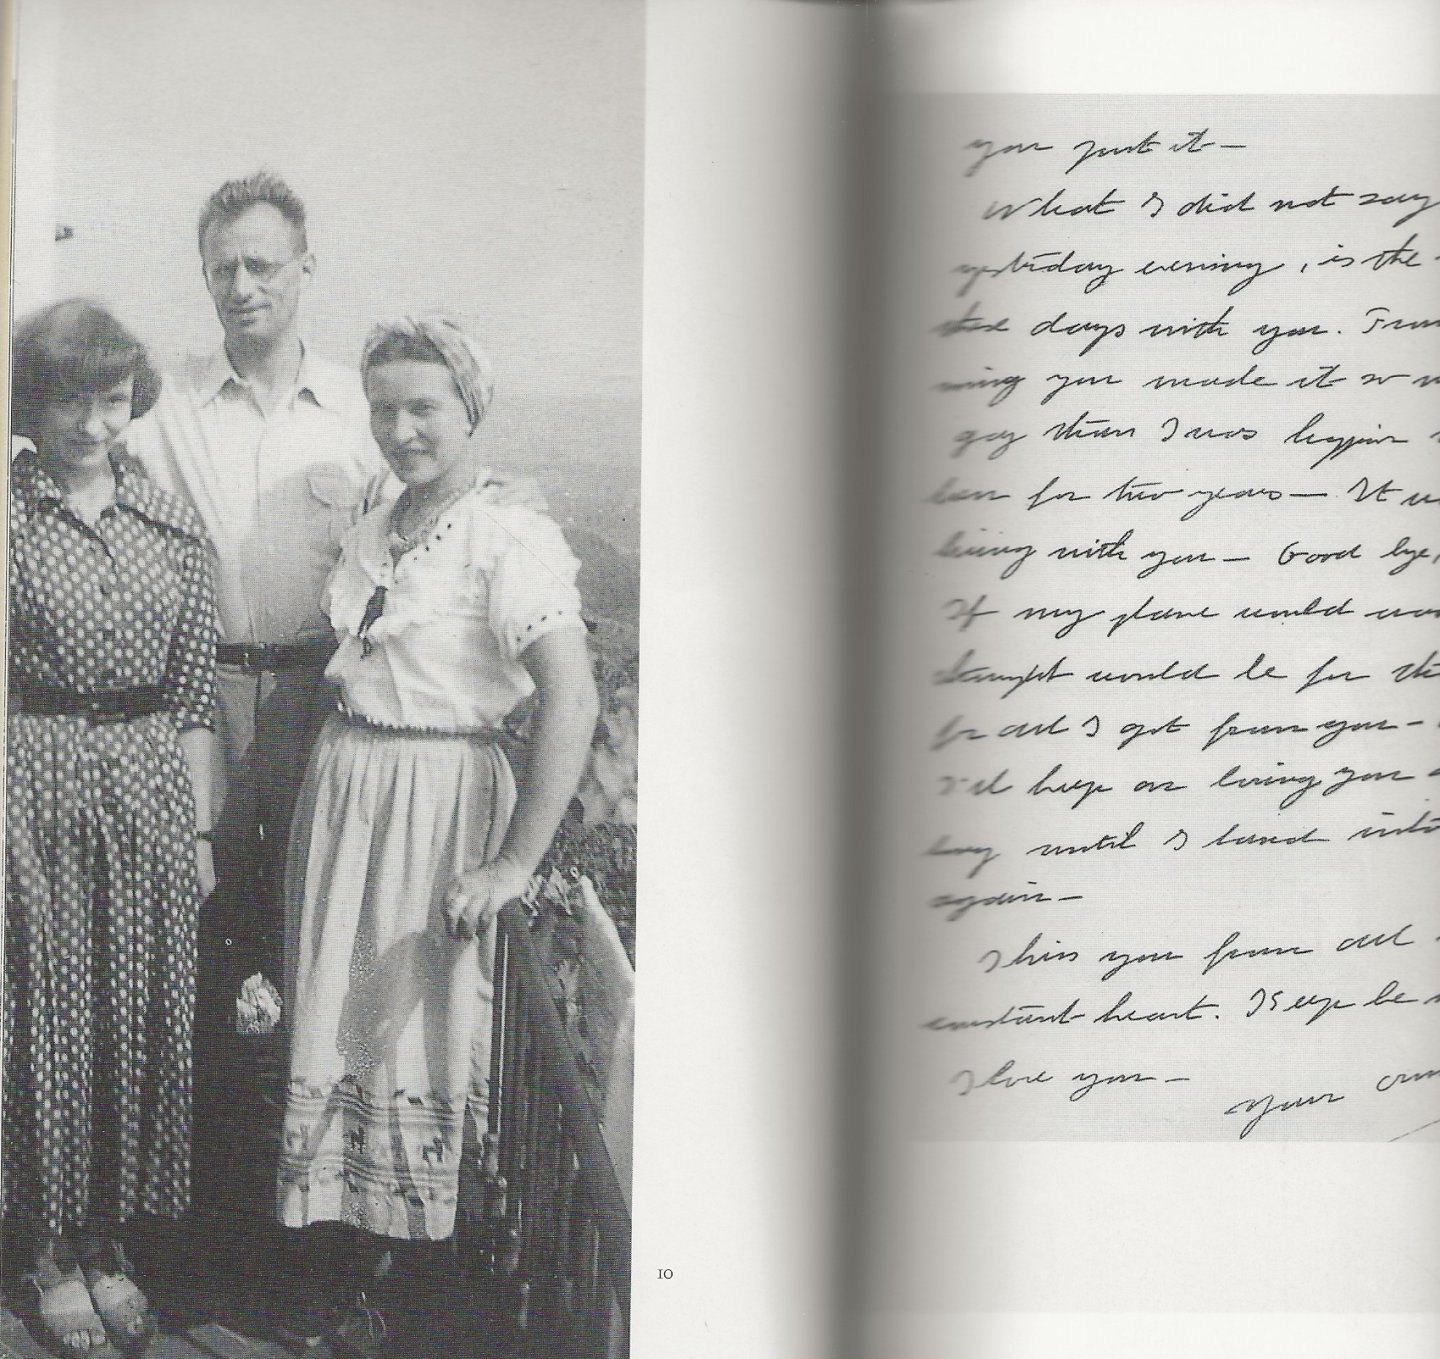 10
you just it —
What I did not say
yesterday evening, is the
these days with you. From
ning you made it so
gay than I was happier
been for two years — It
living with you — Good bye,
If my plane would
thought would be for
for all I got from you —
I'd keep on loving you
long until I land into
again —
I kiss you from all
constant heart. Keep be
I love you —
Your own